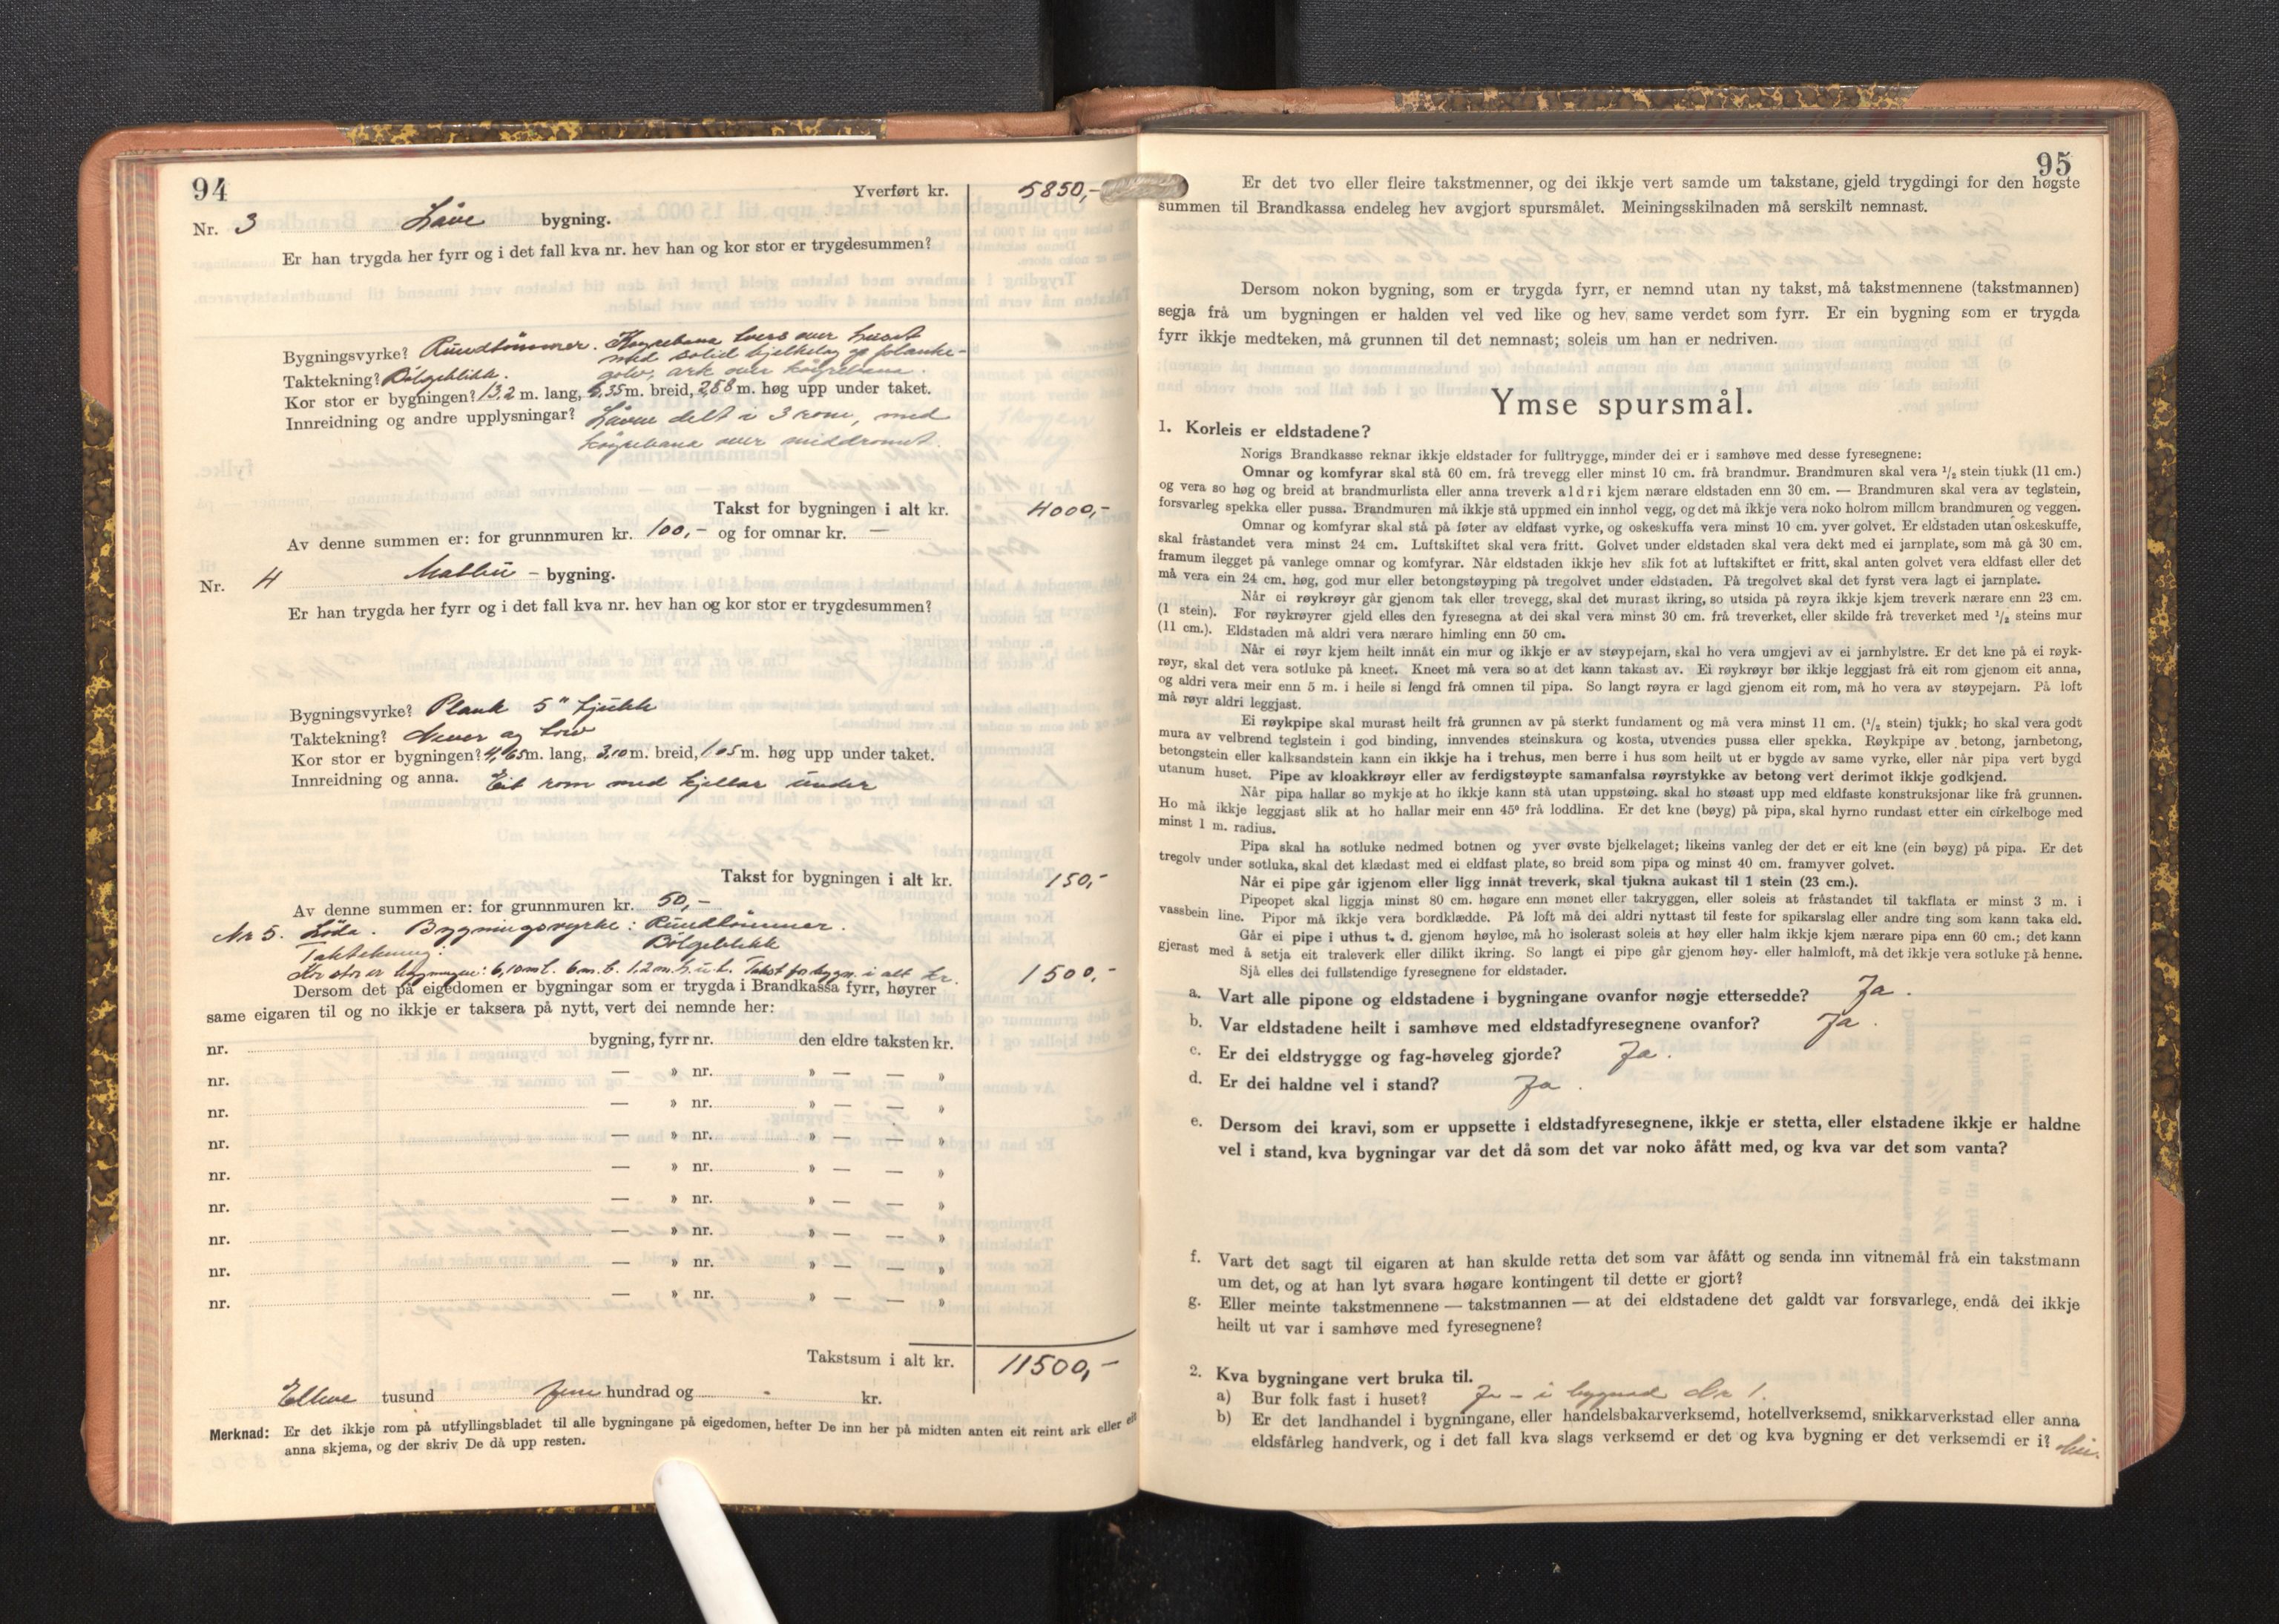 94
Yverført kr. 5850,-
Nr. 3 Låve bygning.
Er han trygda her fyrr og i det fall kva nr. hev han og kor stor er trygdesummen?
Bygningsvyrke? Rundtömmer. Köyrebana tvers over huset
med solid bjelkelag og planke-
Taktekning? Bölgeblikk. golv, ark over köyrebana.
Kor stor er bygningen? 13,2 m. lang, 6,35 m. breid, 2,58 m. høg upp under taket.
Innreidning og andre upplysningar? Låven delt i 3 rom, med
köyrebana over middromet.
Takst for bygningen i alt kr. 4000,-
Av denne summen er: for grunnmuren kr. 100,- og for omnar kr. —
Nr. 4 Matbu - bygning.
Er han trygda her fyrr og i det fall kva nr. hev han og kor stor er trygdesummen?
Bygningsvyrke? Plank 5" tjukk
Taktekning? Never og torv
Kor stor er bygningen? 4,65 m. lang, 3,10 m. breid, 1,05 m. høg upp under taket.
Innreidning og anna. Eit rom med kjellar under
Takst for bygningen i alt kr. 150,-
Av denne summen er: for grunnmuren kr. 50,-
Nr 5. Löda. Bygningsvyrke: Rundtömmer.
Taktekning: Bölgeblikk
Kor stor er bygningen: 6,10 m l. 6 m. b. 1,2 m. h. u. t. Takst for bygn. i alt kr. 1500,-
Dersom det på eigedomen er bygningar som er trygda i Brandkassa fyrr, høyrer
same eigaren til og no ikkje er taksera på nytt, vert dei nemnde her:
nr. bygning, fyrr nr. den eldre taksten kr.
nr. — » nr. » — — »
nr. — » nr. » — — »
nr. — » nr. » — — »
nr. — » nr. » — — »
nr. — » nr. » — — »
nr. — » nr. » — — »
nr. — » nr. » — — »
nr. — » nr. » — — »
Takstsum i alt kr. 11500,-
Elleve tusund fem hundrad og - kr.
Merknad: Er det ikkje rom på utfyllingsbladet til alle bygningane på eigedomen, hefter De inn her på midten anten eit reint ark eller eit
anna skjema, og der skriv De då upp resten.
95
Er det tvo eller fleire takstmenner, og dei ikkje vert samde um takstane, gjeld trygdingi for den høgste
summen til Brandkassa endeleg hev avgjort spursmålet. Meiningsskilnaden må serskilt nemnast.
Dersom nokon bygning, som er trygda fyrr, er nemnd utan ny takst, må takstmennene (takstmannen)
segja frå um bygningen er halden vel ved like og hev same verdet som fyrr. Er ein bygning som er trygda
fyrr ikkje medteken, må grunnen til det nemnast; soleis um han er nedriven.
Ymse spursmål.
1. Korleis er eldstadene?
Norigs Brandkasse reknar ikkje eldstader for fulltrygge, minder dei er i samhøve med desse fyresegnene:
Omnar og komfyrar skal stå 60 cm. frå trevegg eller minst 10 cm. frå brandmur. Brandmuren skal vera ½ stein tjukk (11 cm.)
og vera so høg og breid at brandmurlista eller anna treverk aldri kjem nærare eldstaden enn 30 cm. — Brandmuren skal vera av teglstein,
forsvarleg spekka eller pussa. Brandmuren må ikkje stå uppmed ein innhol vegg, og det må ikkje vera noko holrom millom brandmuren og veggen.
Omnar og komfyrar skal stå på føter av eldfast vyrke, og oskeskuffa vera minst 10 cm. yver golvet. Er eldstaden utan oskeskuffe,
skal fråstandet vera minst 24 cm. Luftskiftet skal vera fritt. Golvet under eldstaden skal vera dekt med ei jarnplate, som må gå 30 cm.
framum ilegget på vanlege omnar og komfyrar. Når eldstaden ikkje hev slik fot at luftskiftet er fritt, skal anten golvet vera eldfast eller det
må vera ein 24 cm. høg, god mur eller betongstøyping på tregolvet under eldstaden. På tregolvet skal det fyrst vera lagt ei jarnplate.
Når ei røykrøyr går gjenom tak eller trevegg, skal det murast ikring, so utsida på røyra ikkje kjem treverk nærare enn 23 cm.
(1 stein). For røykrøyrer gjeld elles den fyresegna at dei skal vera minst 30 cm. frå treverket, eller skilde frå treverket med ½ steins mur
(11 cm.). Eldstaden må aldri vera nærare himling enn 50 cm.
Når ei røyr kjem heilt innåt ein mur og ikkje er av støypejarn, skal ho vera umgjevi av ei jarnhylstre. Er det kne på ei røyk-
røyr, skal det vera sotluke på kneet. Kneet må vera so at det kann takast av. Ei røykrøyr bør ikkje leggjast frå eit rom gjenom eit anna,
og aldri vera meir enn 5 m. i heile si lengd frå omnen til pipa. So langt røyra er lagd gjenom eit rom, må ho vera av støypejarn. På loft
må røyr aldri leggjast.
Ei røykpipe skal murast heilt frå grunnen av på sterkt fundament og må vera minst 11 cm. (½ stein) tjukk; ho skal vera godt
mura av velbrend teglstein i god binding, innvendes steinskura og kosta, utvendes pussa eller spekka. Røykpipe av betong, jarnbetong,
betongstein eller kalksandstein kann ein ikkje ha i trehus, men berre i hus som heilt ut er bygde av same vyrke, eller når pipa vert bygd
utanum huset. Pipe av kloakkrøyr eller av ferdigstøypte samanfalsa røyrstykke av betong vert derimot ikkje godkjend.
Når pipa hallar so mykje at ho ikkje kann stå utan uppstøing, skal ho støast upp med eldfaste konstruksjonar like frå grunnen.
Ho må ikkje leggjast slik at ho hallar meir enn 45° frå loddlina. Er det kne (bøyg) på pipa, skal hyrno rundast etter ein cirkelboge med
minst 1 m. radius.
Pipa skal ha sotluke nedmed botnen og yver øvste bjelkelaget; likeins vanleg der det er eit kne (ein bøyg) på pipa. Er det
tregolv under sotluka, skal det klædast med ei eldfast plate, so breid som pipa og minst 40 cm. framyver golvet.
Når ei pipe går igjenom eller ligg innåt treverk, skal tjukna aukast til 1 stein (23 cm.).
Pipeopet skal liggja minst 80 cm. høgare enn mønet eller takryggen, eller soleis at fråstandet til takflata er minst 3 m. i
vassbein line. Pipor må ikkje vera bordklædde. På loft må dei aldri nyttast til feste for spikarslag eller andre ting som kann taka eld.
Går ei pipe i uthus t. d. gjenom høyløe, må ho isolerast soleis at høy eller halm ikkje kjem nærare pipa enn 60 cm.; det kann
gjerast med å setja eit traleverk eller dilikt ikring. So langt ei pipe går gjenom høy- eller halmloft, må det ikkje vera sotluke på henne.
Sjå elles dei fullstendige fyresegnene for eldstader.
a. Vart alle pipone og eldstadene i bygningane ovanfor nøgje ettersedde? Ja.
b. Var eldstadene heilt i samhøve med eldstadfyresegnene ovanfor? Ja.
c. Er dei eldstrygge og fag-høveleg gjorde? Ja.
d. Er dei haldne vel i stand? Ja.
e. Dersom dei kravi, som er uppsette i eldstadfyresegnene, ikkje er stetta, eller elstadene ikkje er haldne
vel i stand, kva bygningar var det då som det var noko åfått med, og kva var det som vanta?
f. Vart det sagt til eigaren at han skulde retta det som var åfått og senda inn vitnemål frå ein takstmann
um det, og at han lyt svara høgare kontingent til dette er gjort?
g. Eller meinte takstmennene — takstmannen — at dei eldstadene det galdt var forsvarlege, endå dei ikkje
heilt ut var i samhøve med fyresegnene?
2. Kva bygningane vert bruka til.
a) Bur folk fast i huset? Ja - i bygnad Nr 1.
b) Er det landhandel i bygningane, eller handelsbakarverksemd, hotellverksemd, snikkarverkstad eller anna
eldsfårleg handverk, og i det fall kva slags verksemd er det og kva bygning er det verksemdi er i? Nei.